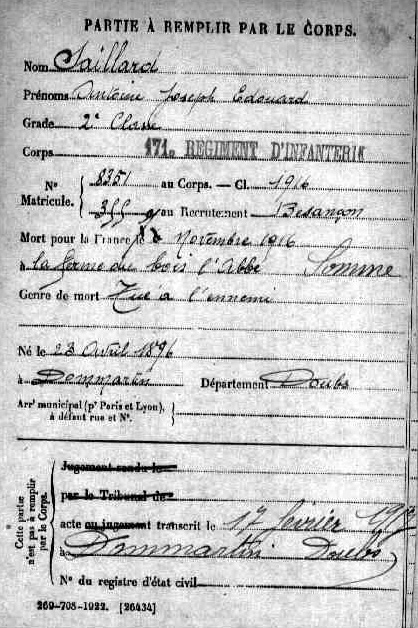 PARTIE À REMPLIR PAR LE CORPS.
Nom Saillard
Prénoms Antoine Joseph Edouard
Grade 2e Classe
Corps 171e REGIMENT D'INFANTERIE
N° Matricule. { 8351 au Corps. — Cl. 1916
355 au Recrutement Besançon
Mort pour la France le Novembre 1916
à la ferme du bois l'Abbé Somme
Genre de mort Tué à l'ennemi
Né le 23 Avril 1896
à Dommartin Département Doubs
Arrt municipal (pr Paris et Lyon), à défaut rue et N°. {
Cette partie n'est pas à remplir par le Corps.
Jugement rendu le
par le Tribunal de
acte ou jugement transcrit le 17 février
à Dommartin Doubs
N° du registre d'état civil
269-708-1922. [26434]